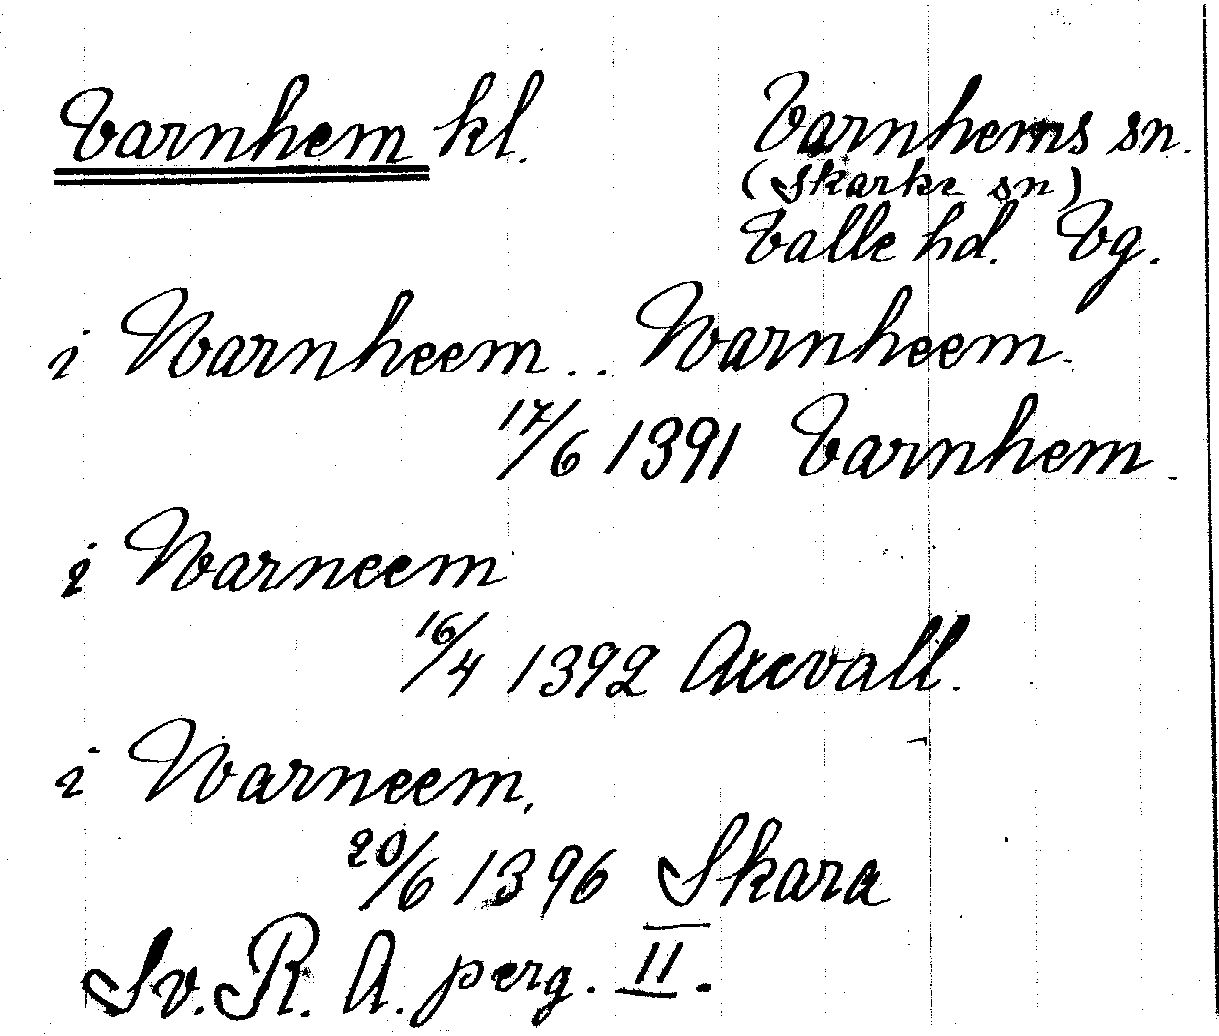 Varnhem kl.
Varnhems sn.
(Skarke sn)
Valle hd. Vg.
i Warnheem .. Warnheem.
17/6 1391 Varnhem.
i Warneem
16/4 1392 Axevall.
i Warneem,
20/6 1396 Skara
Sv. R. A. perg. II.